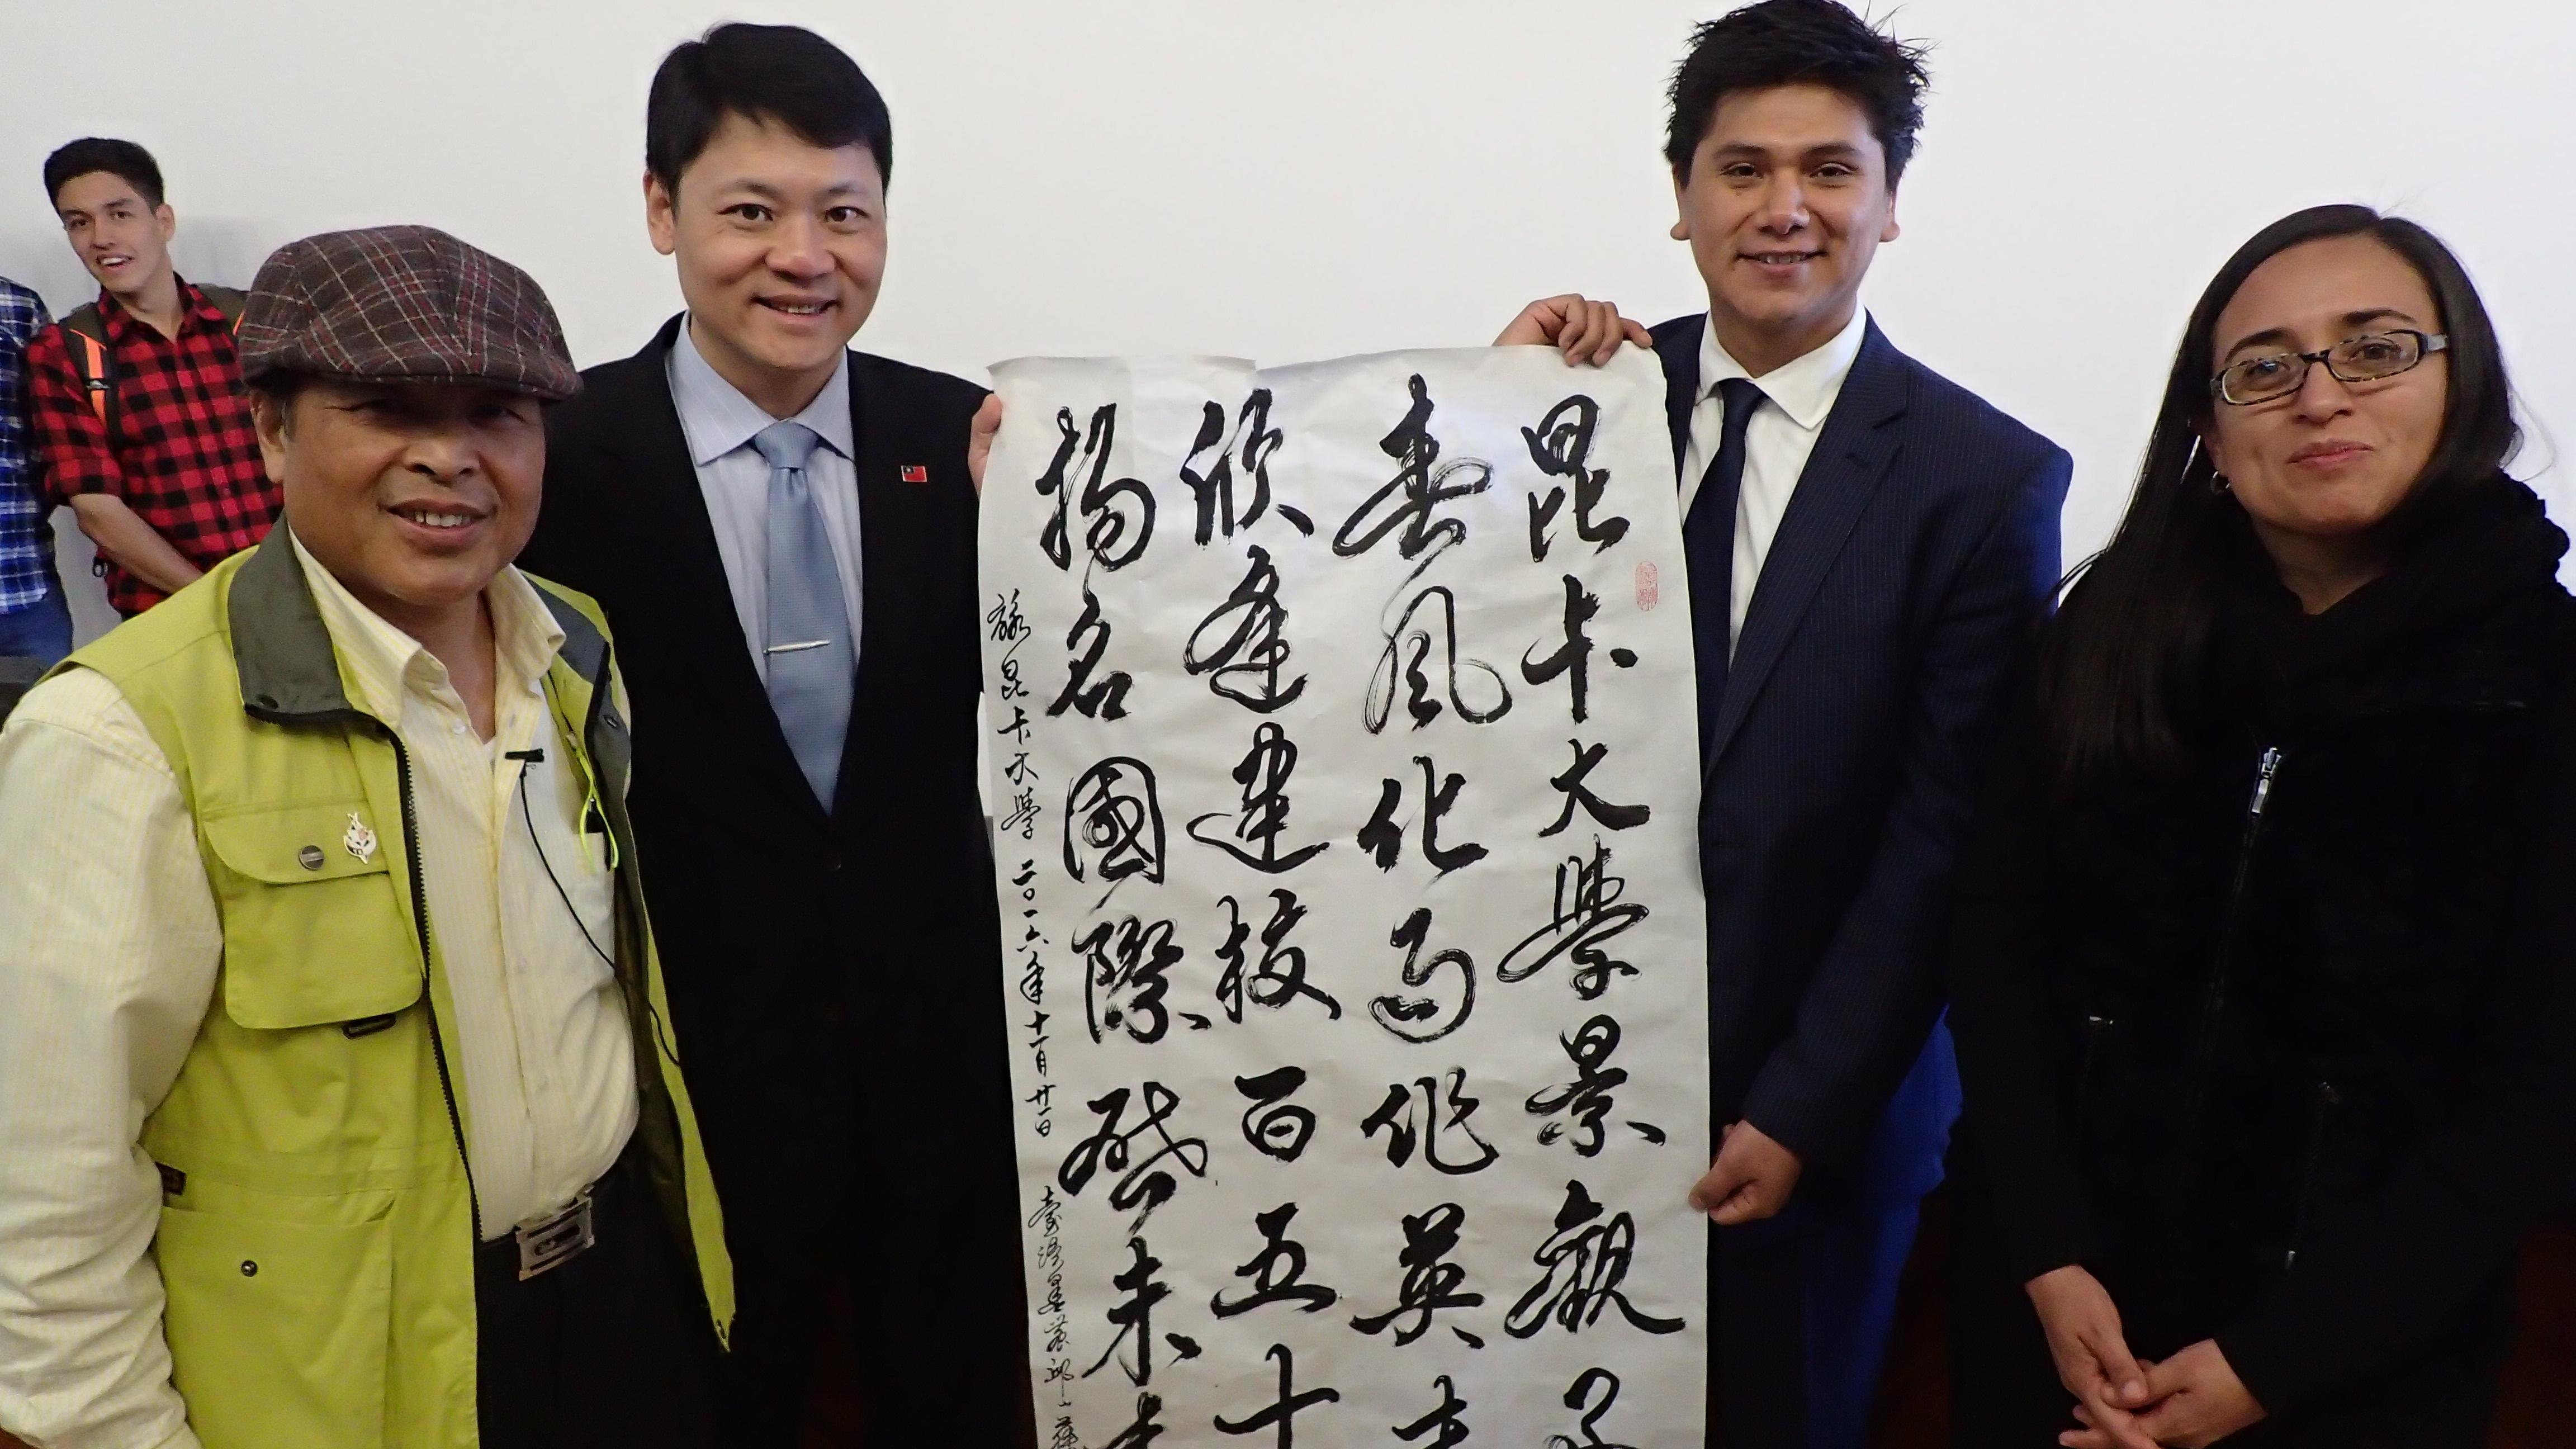 昆卡大學景觀
春風化雨作英
欣逢建校百五十
揚名國際啟未
昆卡大學 二〇一六年十一月廿一日 臺灣